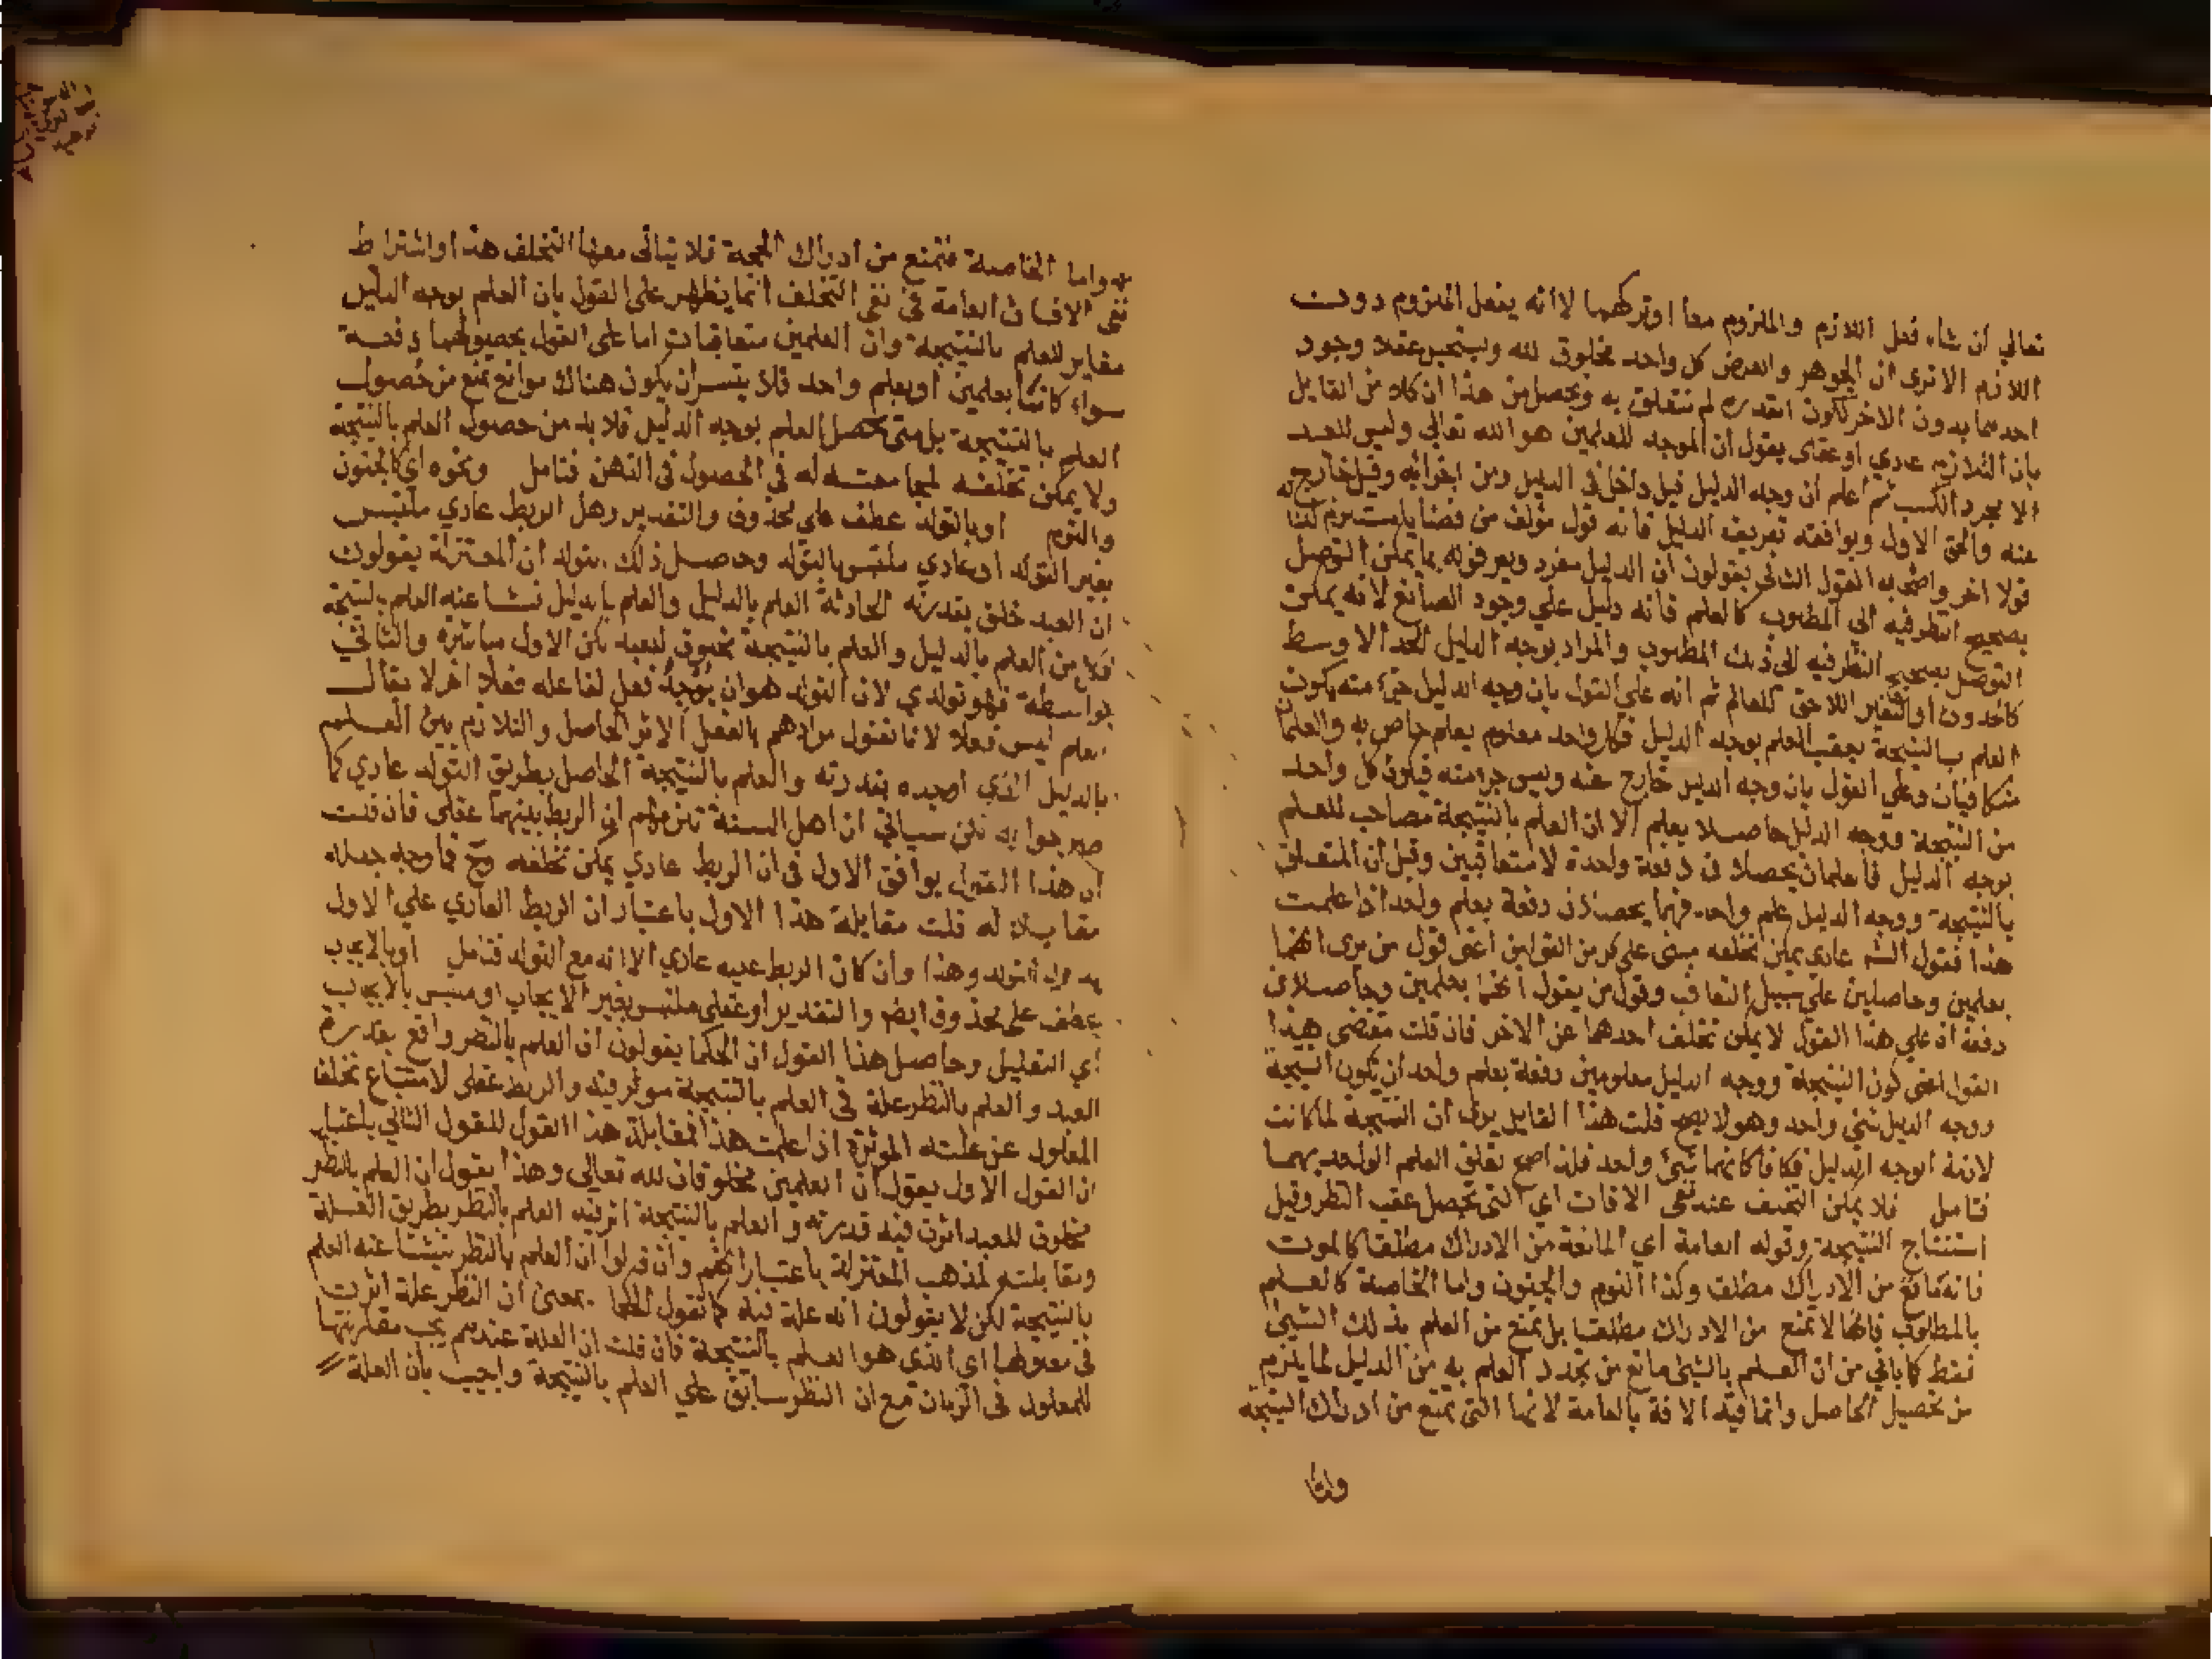 تعالي ان شاء فعل اللازم والملزوم معا او تركهما لا انه يفعل الملزوم دون
اللازم الا تري ان الجوهر والعرض كل واحد مخلوق لله ويستحيل عقلا وجود
احدهما بدون الاخر لكون القدرة لم تتعلق به وتحصل من هذا ان كلا من القايل
بان التلازم عادي او عقلي يقول ان الموجد للعلمين هو الله تعالي وليس للعبد
الا مجرد الكسب ثم اعلم ان وجه الدليل قيل داخل في الدليل ومن اجزائه وقيل خارج
عنه والحق الاول ويوافقه تعريف الدليل فانه قول مؤلف من قضايا يستلزم لذاتها
قولا اخر واصحاب القول الثاني يقولون ان الدليل مفرد ويعرفونه بما يمكن التوصل
بصحيح النظر فيه الي المطلوب كالعالم فانه دليل علي وجود الصانع لانه يمكن
التوصل بصحيح النظر فيه الي ذلك المطلوب والمراد بوجه الدليل الحد الاوسط
كالحدوث او التغير اللاحق للعالم ثم انه علي القول بان وجه الدليل جزء منه يكون
العلم بالنتيجة بعقب العلم بوجه الدليل فكل واحد معلوم بعلم خاص به والعلمان
متكافيان وعلي القول بان وجه الدليل خارج عنه وليس جزء منه فيكون كل واحد
من النتيجة ووجه الدليل حاصلا بعلم الا ان العلم بالنتيجة مصاحب للعلم
بوجه الدليل فالعلمان يحصلان في دفعة واحدة لا متعاقبين وقيل ان المتعلق
بالنتيجة ووجه الدليل علم واحد فهما يحصلان دفعة بعلم واحد اذا علمت
هذا فقول الشم عادي يمكن تخلفه مبني علي كل من القولين اعني قول من يري انهما
بعلمين وحاصلين علي سبيل التعاقب وقول من يقول انهما بعلمين وحاصلان
دفعة اذ علي هذا القول لا يمكن تخلف احدهما عن الاخر فان قلت مقتضي هذا
القول اعني كون النتيجة ووجه الدليل معلومين دفعة بعلم واحد ان تكون النتيجة
ووجه الدليل شئ واحد وهو لا يصح قلت هذا القايل يري ان النتيجة لما كانت
لازمة لوجه الدليل فكانا كانهما شئ واحد فلذا صح تعلق العلم الواحد بهما
فتامل فلا يمكن التخلف عند نفي الافات اي التي تحصل عقب النظر وقبل
استنتاج النتيجة وقوله العامة اي المانعة من الادراك مطلقا كالموت
فانه مانع من الادراك مطلقا وكذا النوم والجنون واما الخاصة كالعلم
بالمطلوب فانها لا تمنع من الادراك مطلقا بل تمنع من العلم بذلك الشيئ
فقط كما ياتي من ان العلم بالشيئ مانع من تجدد العلم به من الدليل لما يلزم
من تحصيل الحاصل وانما قيد الافة بالعامة لانها التي تمنع من ادراك النتيجة
واما
واما الخاصة فتمنع من ادراك الحجة فلا يتاتي معها التخلف هذا واشتراط
نفي الافات العامة في نفي التخلف انما يظهر علي القول بان العلم بوجه الدليل
مغاير للعلم بالنتيجة وان العلمين متعاقبان واما علي القول بحصولهما دفعة
سواء كانتا بعلمين او بعلم واحد فلا يتسر ان يكون هناك موانع تمنع من حصول
العلم بالنتيجة بل متي حصل العلم بوجه الدليل فلا بد من حصول العلم بالنتيجة
ولا يمكن تخلفه لمصاحبته له في الحصول في الذهن فتامل ونحوه اي كالجنون
والنوم او بالتولد عطف علي محذوف والتقدير وهل الربط عادي ملتبس
بغير التولد او عادي ملتبس بالتولد وحاصل ذلك التولد ان المعتزلة يقولون
ان العبد خلق بقدرته الحادثة العلم بالدليل والعلم بالدليل نشا عنه العلم بالنتيجة
فكل من العلم بالدليل والعلم بالنتيجة مخلوق للعبد لكن الاول مباشرة والثاني
بواسطة فهو تولدي لان التولد هو ان يوجد فعل لفاعله فعلا اخر لا يقال
العلم ليس فعلا لانا نقول مرادهم بالفعل الاثر الحاصل والتلازم بين العلم
بالدليل الذي اوجده بقدرته والعلم بالنتيجة الحاصل بطريق التولد عادي كما
صرحوا به لكن سياتي ان اهل السنة تلزمهم ان الربط بينهما عقلي فان قلت
ان هذا القول يوافق الاول في ان الربط عادي يمكن تخلفه وح فما وجه جعله
مقابلا له قلت مقابلة هذا الاول باعتبار ان الربط العادي علي الاول
بدون التولد وهذا وان كان الربط عليه عادي الا انه مع التولد فتامل او بالايجاب
عطف علي محذوف ايضا والتقدير او عقلي ملتبس بغير الايجاب او ملتبس بالايجاب
اي التعليل وحاصل هذا القول ان الحكما يقولون ان العلم بالنظر واقع بقدرة
العبد والعلم بالنظر علة في العلم بالنتيجة موثر فيه والربط عقلي لامتناع تخلف
المعلول عن علته الموثرة اذا علمت هذا فمقابلة هذا القول للقول الثاني باعتبار
ان القول الاول يقول ان العلمين مخلوقان لله تعالي وهذا يقول ان العلم بالنظر
مخلوق للعبد اثرت فيه قدرته والعلم بالنتيجة اثر فيه العلم بالنظر بطريق العلة
ومقابلته لمذهب المعتزلة باعتبار انهم وان قالوا ان العلم بالنظر ينشا عنه العلم
بالنتيجة لكن لا يقولون انه علة فيه كما تقول الحكما بمعني ان النظر علة اثرت
في معلولها اي الذي هو العلم بالنتيجة فان قلت ان العلة عندهم يجب مقارنتها
للمعلول في الزمان مع ان النظر سابق علي العلم بالنتيجة واجيب بان العلة